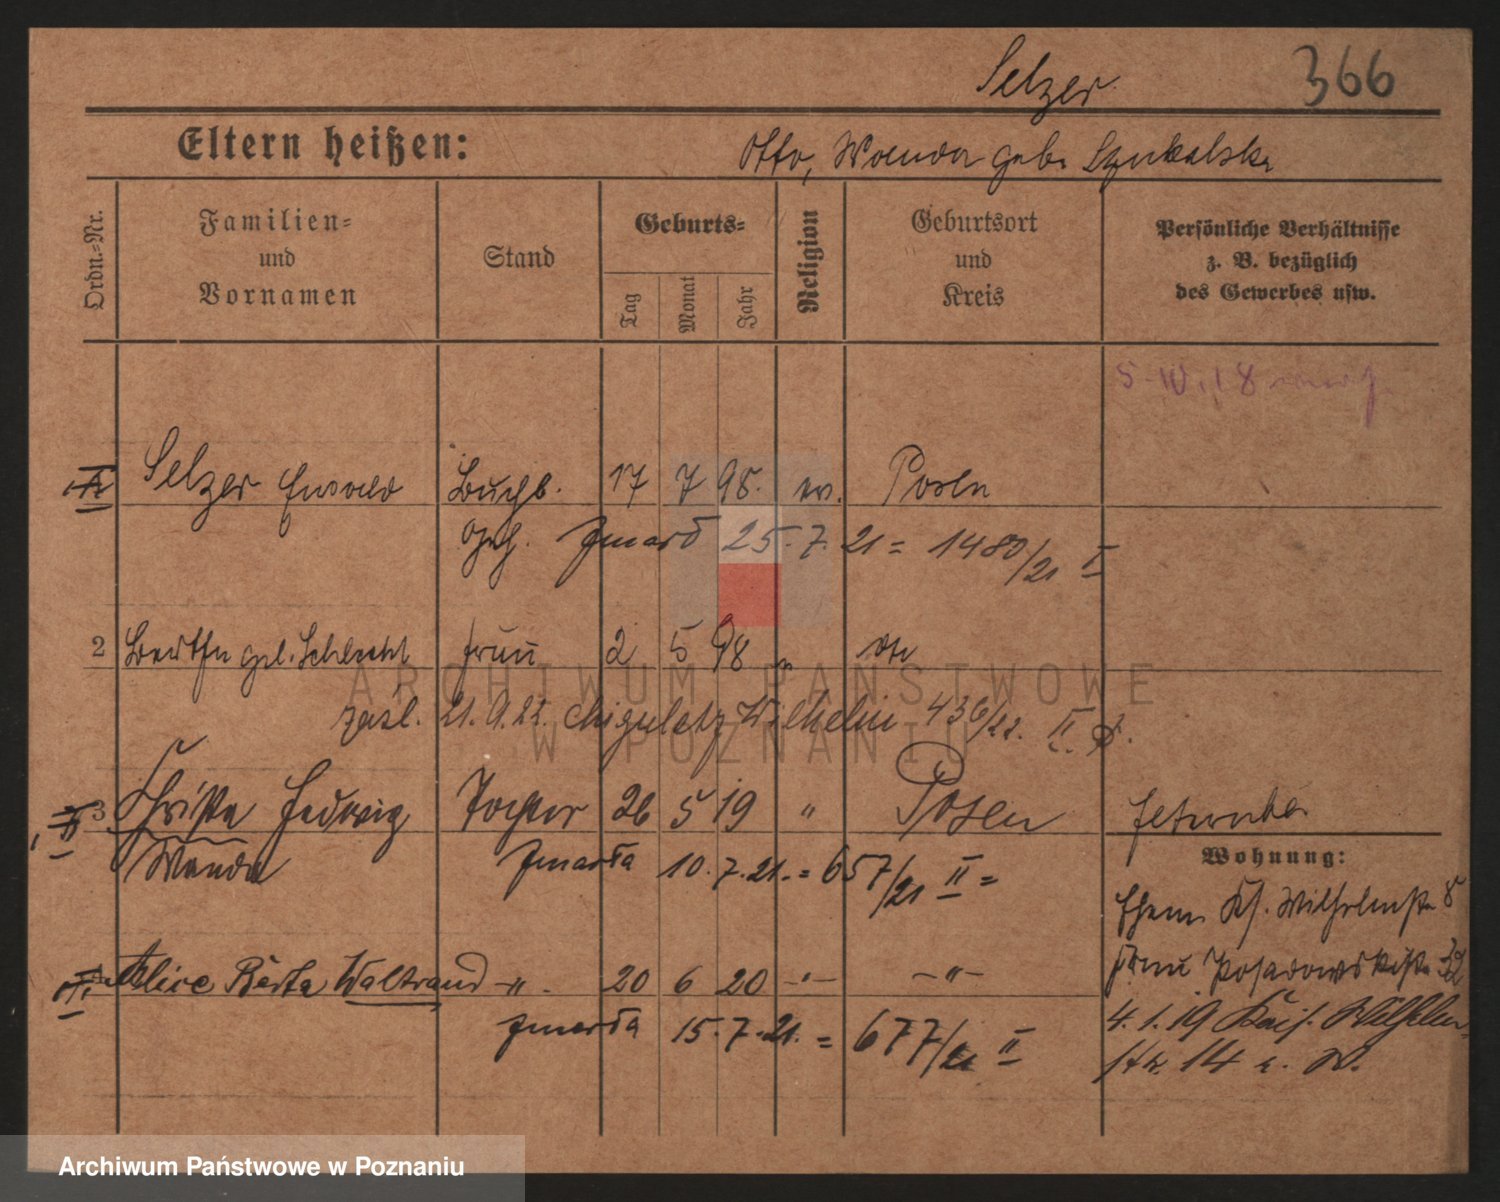 Selzer 366
Eltern heißen: Otto, Wanda geb. Szukalska
Ordn.-Nr. Familien- und Vornamen Stand Geburts- Tag Monat Jahr Religion Geburtsort und Kreis Persönliche Verhältnisse z. B. bezüglich des Gewerbes usw.
5.10.18
Selzer Ewald Buchb. 17 7 95. ev. Posen
Geh. Zmarł 25.7.21 = 1480/21 I
2 Bertha geb. Schlecht Frau 2 5 98 " Posen
zaśl. 21.9.22. Wilhelm 436/22. II
3 Christa Hedwig Tochter 26 5 19 " Posen
Wanda Zmarła 10.7.21. = 657/21 II =
Wohnung:
Ehem. Ks. Wilhelmstr. 8
Alice Berta Waltraud -"- 20 6 20 -"- -"-
Frau Posadowskistr. 32
Zmarła 15.7.21. = 677/21 II
4.1.19 Kais. Wilhelm-
str. 14 b. W.
ARCHIWUM PAŃSTWOWE
W POZNANIU
Archiwum Państwowe w Poznaniu